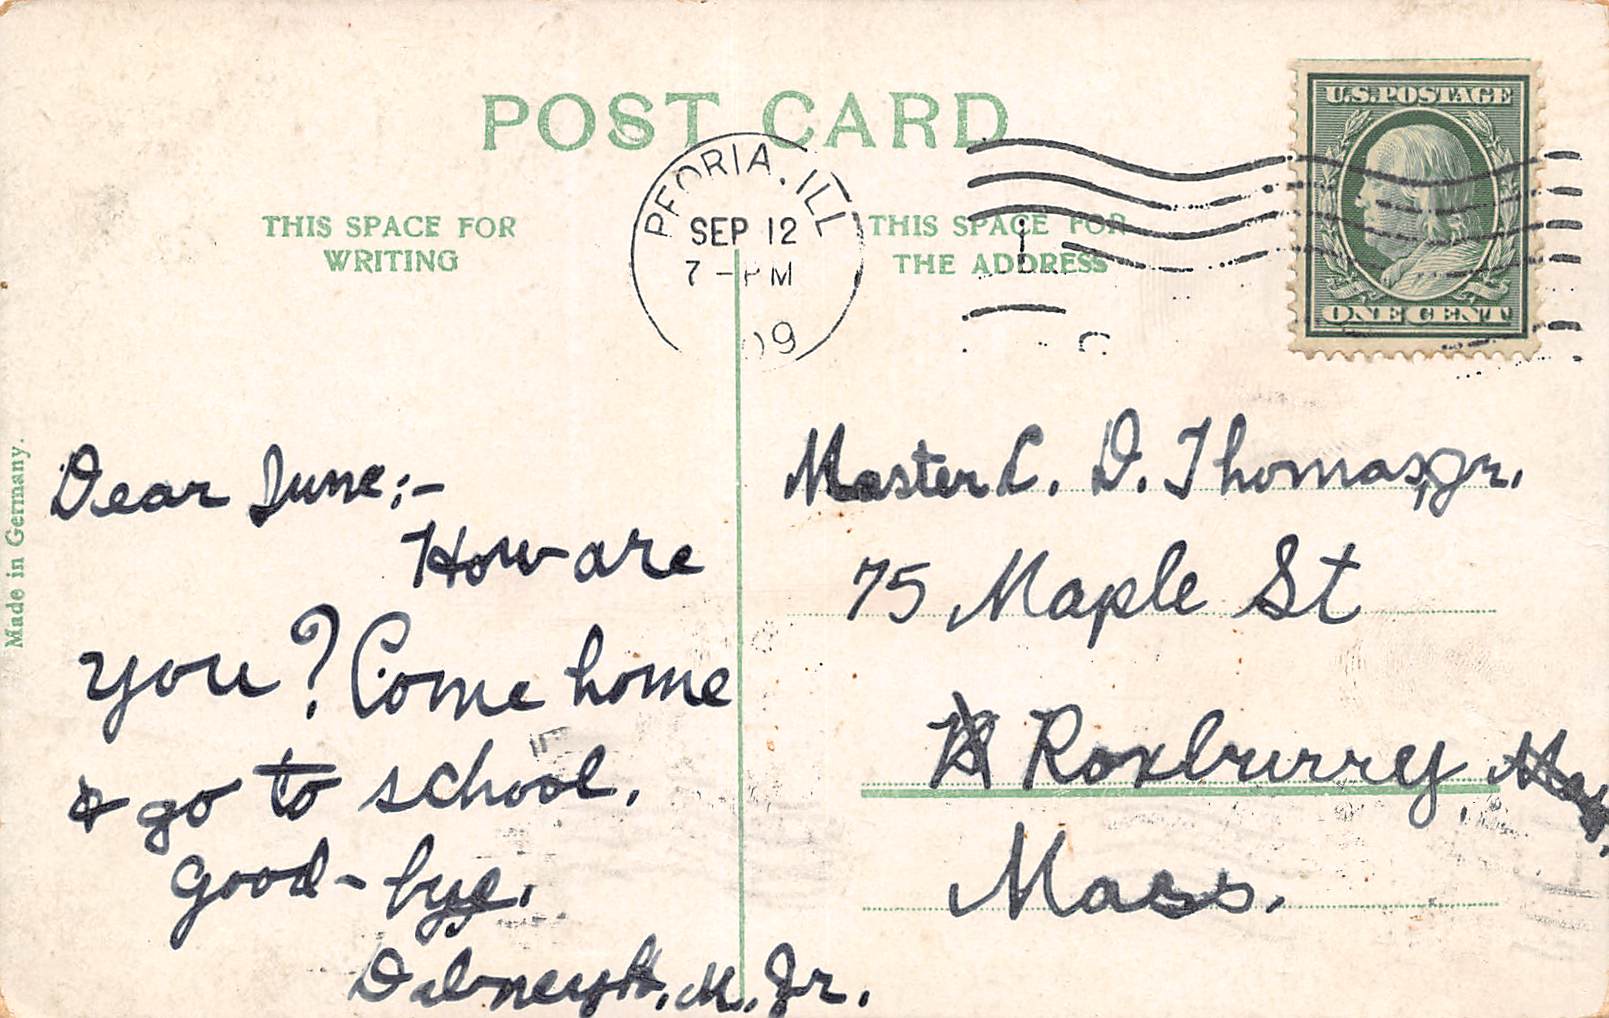 POST CARD
U.S. POSTAGE
ONE CENT
PEORIA, ILL
SEP 12
7 - PM
09
THIS SPACE FOR
WRITING
THIS SPACE FOR
THE ADDRESS
Made in Germany.
Dear June:-
How are
you? Come home
& go to school.
Good-bye.
M. Jr.
Master C. D. Thomas, Jr.
75 Maple St
Roxburry
Mass.